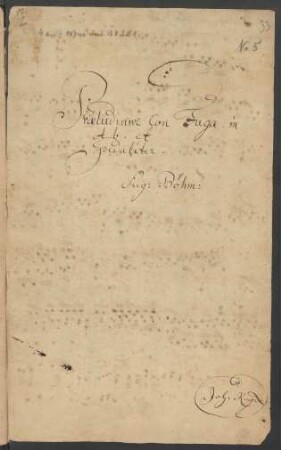 33
No. 5
Præludium Con Fuga in
A. b.
pedaliter.
Sigr: Böhm:
Joh: